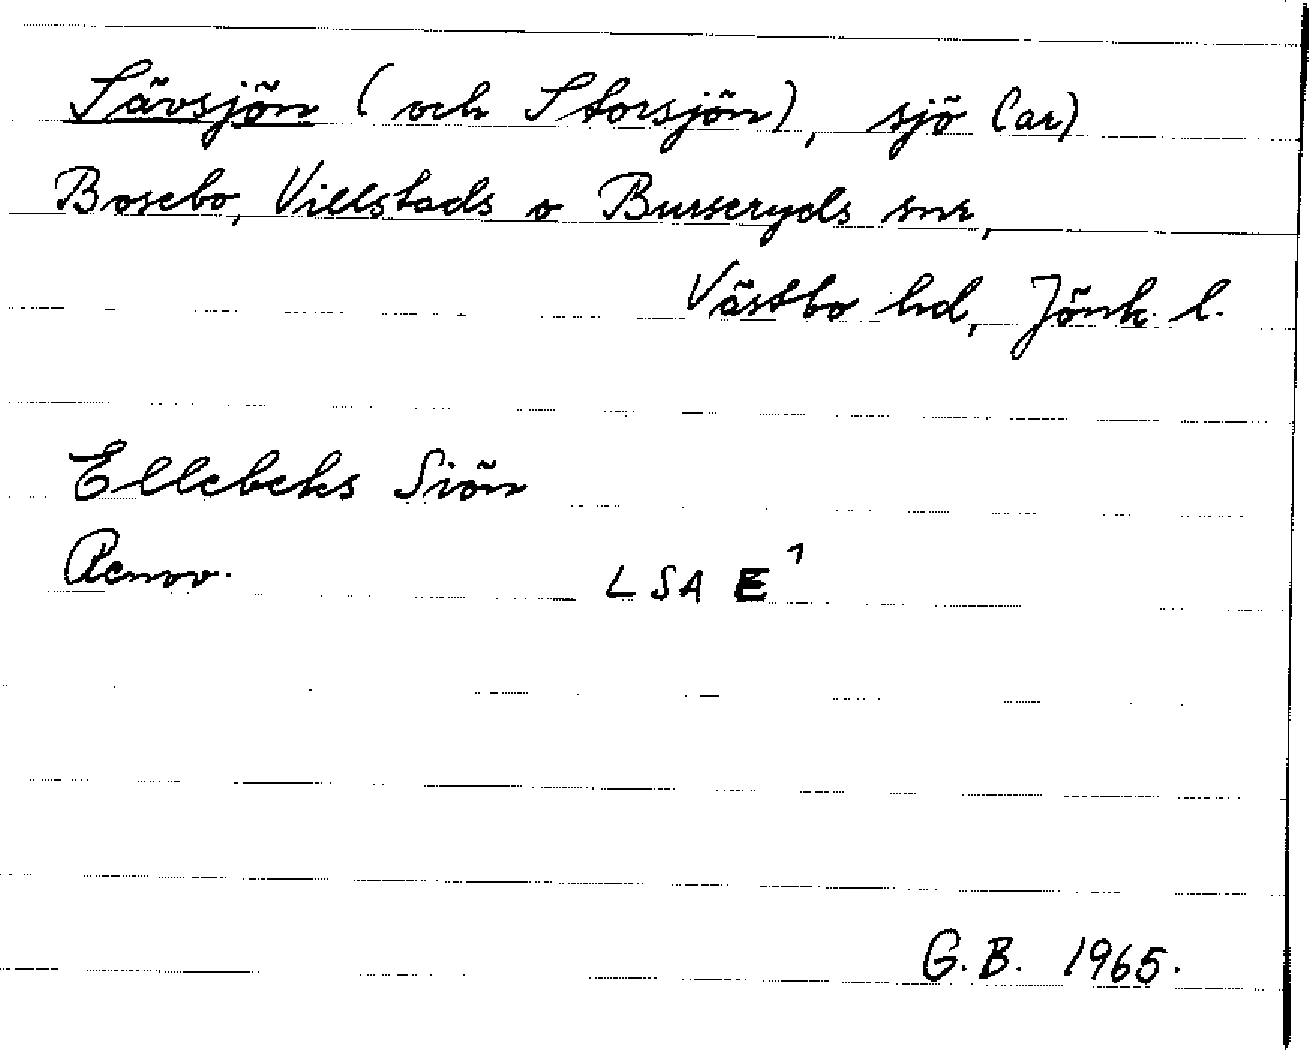 Sävsjön (och Storsjön), sjö (ar)
Bosebo, Villstads o Burseryds snr,
Västbo hd, Jönk. l.
Ellebeks Siön
Renov. LSA E¹
G. B. 1965.